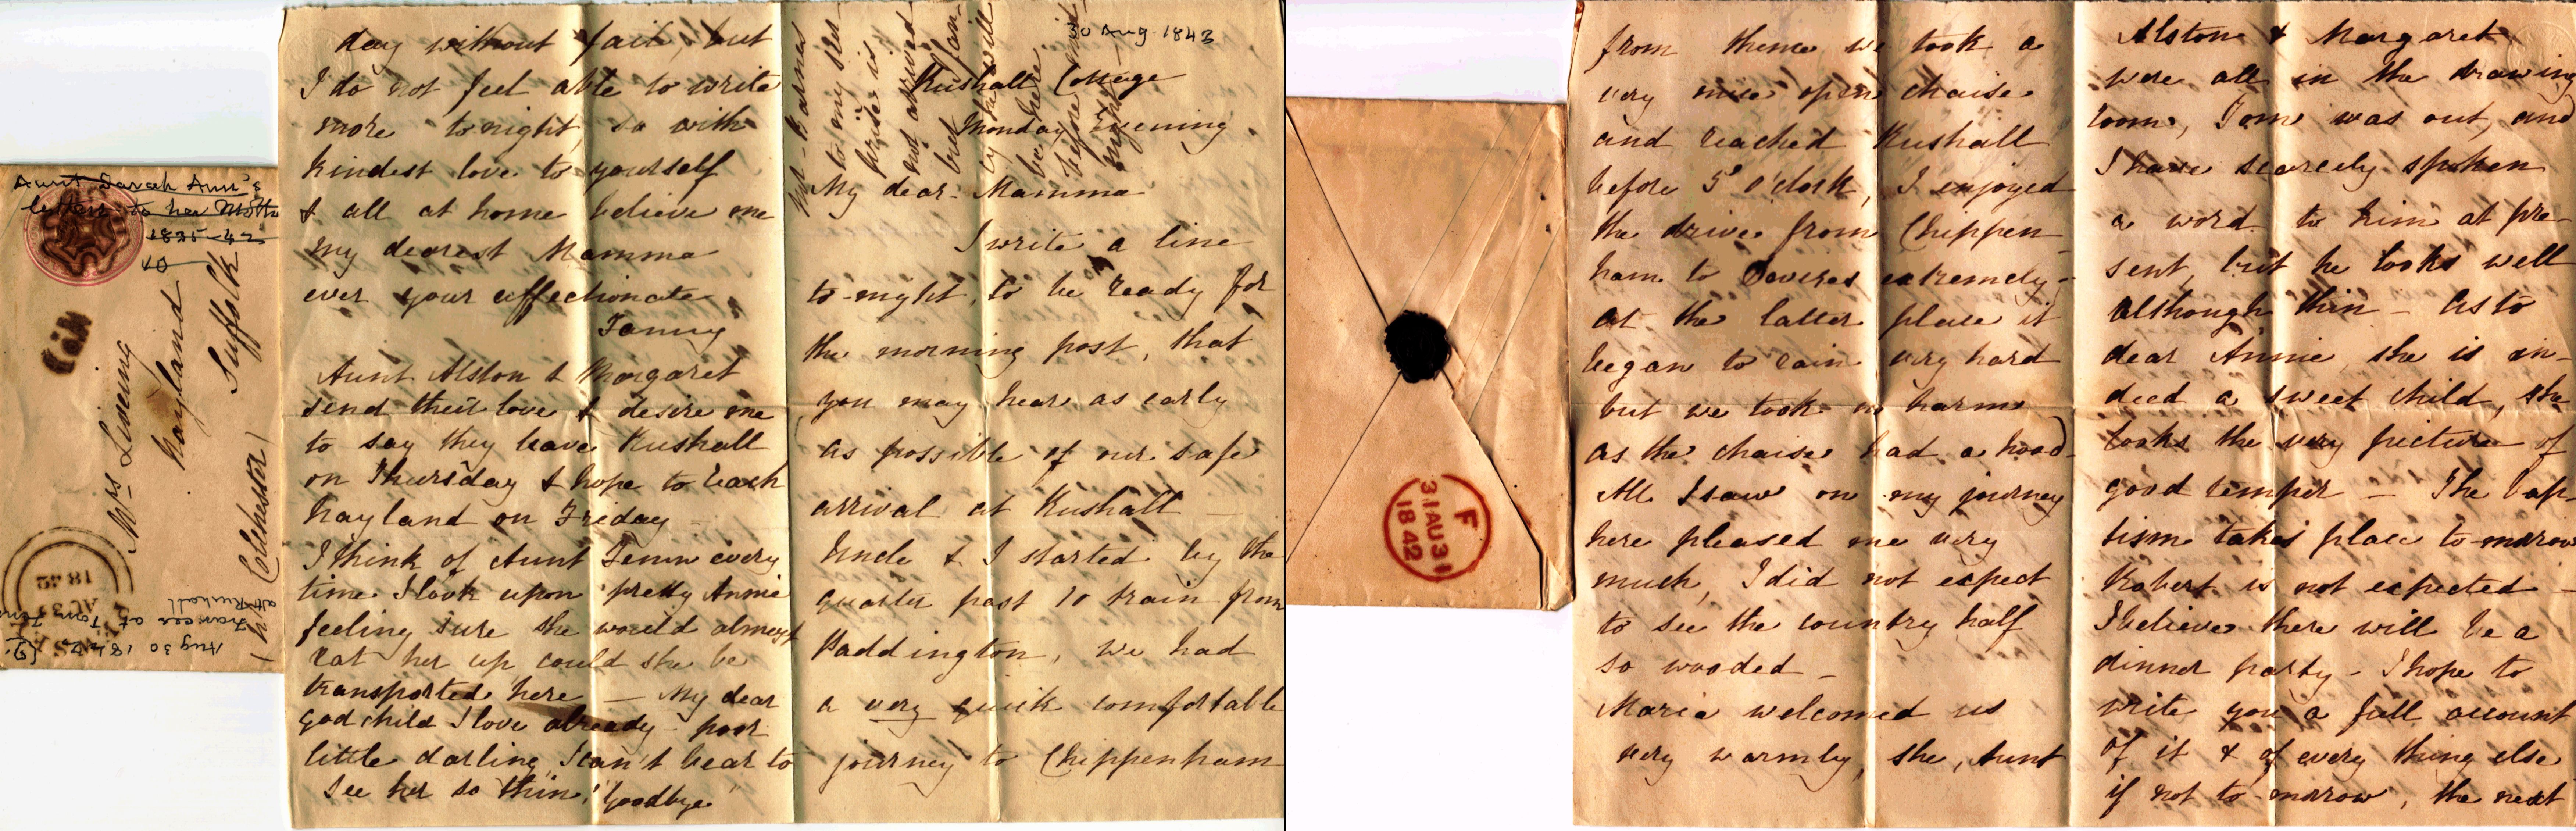 Aunt Sarah Ann's
letters to her Mother
1835-42
Mrs Liveing
Nayland
Suffolk
(nr Colchester)
Aug 30 1842
Frances at
at Rushall
AU 31
1842
30 Aug 1843
Rushall Cottage
Monday Evening
My dear Mamma
I write a line
to-night, to be ready for
the morning post, that
you may hear as early
as possible of our safe
arrival at Rushall —
Uncle & I started by the
quarter past 10 train from
Paddington, we had
a very quick comfortable
journey to Chippenham
from thence we took a
very nice open chaise
and reached Rushall
before 5 o'clock, I enjoyed
the drive from Chippen-
ham to Devizes extremely-
at the latter place it
began to rain very hard
but we took no harm
as the chaise had a hood
All I saw on my journey
here pleased me very
much, I did not expect
to see the country half
so wooded —
Maria welcomed us
very warmly, she, Aunt
Alston & Margaret
were all in the drawing
room, Tom was out, and
I have scarcely spoken
a word to him at pre-
sent, but he looks well
although thin — As to
dear Annie, she is in-
deed a sweet child, she
looks the very picture of
good temper — The bap-
tism takes place to-morrow
Robert is not expected —
I believe there will be a
dinner party — I hope to
write you a full account
of it & of every thing else
if not to-morrow, the next
day without fail, but
I do not feel able to write
more to night, so with
kindest love to yourself
& all at home believe me
my dearest Mamma
ever your affectionate
Fanny
Aunt Alston & Margaret
send their love & desire me
to say they leave Rushall
on Thursday & hope to reach
Nayland on Friday —
I think of Aunt every
time I look upon pretty Annie
feeling sure she would almost
eat her up could she be
transported here — My dear
godchild I love already — poor
little darling, I can't bear to
see her so thin! "Goodbye"
Mr. Barnes
to my sur-
prise is
not arrived
but
by the will
be here
before
F
31 AU 31
1842